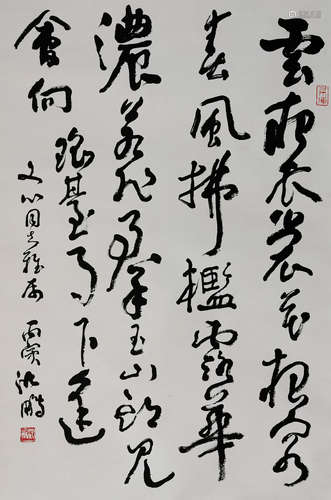 雲想衣裳花想容
春風拂檻露華
濃若非羣玉山頭見
會向瑤臺月下逢
文心同志雅属
丙寅沈鵬